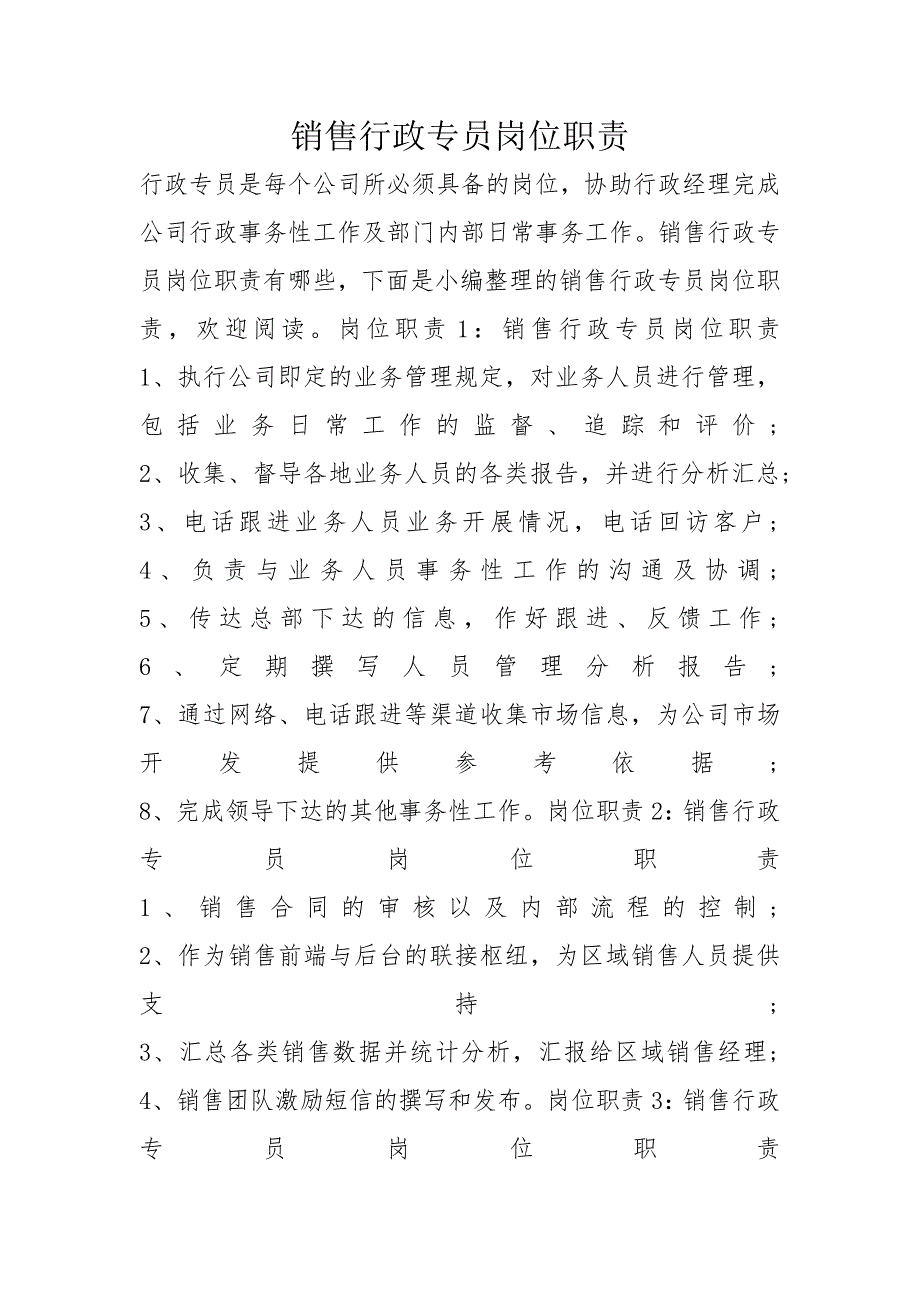 销售行政专员岗位职责
行政专员是每个公司所必须具备的岗位，协助行政经理完成
公司行政事务性工作及部门内部日常事务工作。销售行政专
员岗位职责有哪些，下面是小编整理的销售行政专员岗位职
责，欢迎阅读。岗位职责1：销售行政专员岗位职责
1、执行公司即定的业务管理规定，对业务人员进行管理，
包括业务日常工作的监督、追踪和评价；
2、收集、督导各地业务人员的各类报告，并进行分析汇总；
3、电话跟进业务人员业务开展情况，电话回访客户；
4、负责与业务人员事务性工作的沟通及协调；
5、传达总部下达的信息，作好跟进、反馈工作；
6、定期撰写人员管理分析报告；
7、通过网络、电话跟进等渠道收集市场信息，为公司市场
开发提供参考依据；
8、完成领导下达的其他事务性工作。岗位职责2：销售行政
专员岗位职责
1、销售合同的审核以及内部流程的控制；
2、作为销售前端与后台的联接枢纽，为区域销售人员提供
支持；
3、汇总各类销售数据并统计分析，汇报给区域销售经理；
4、销售团队激励短信的撰写和发布。岗位职责3：销售行政
专员岗位职责